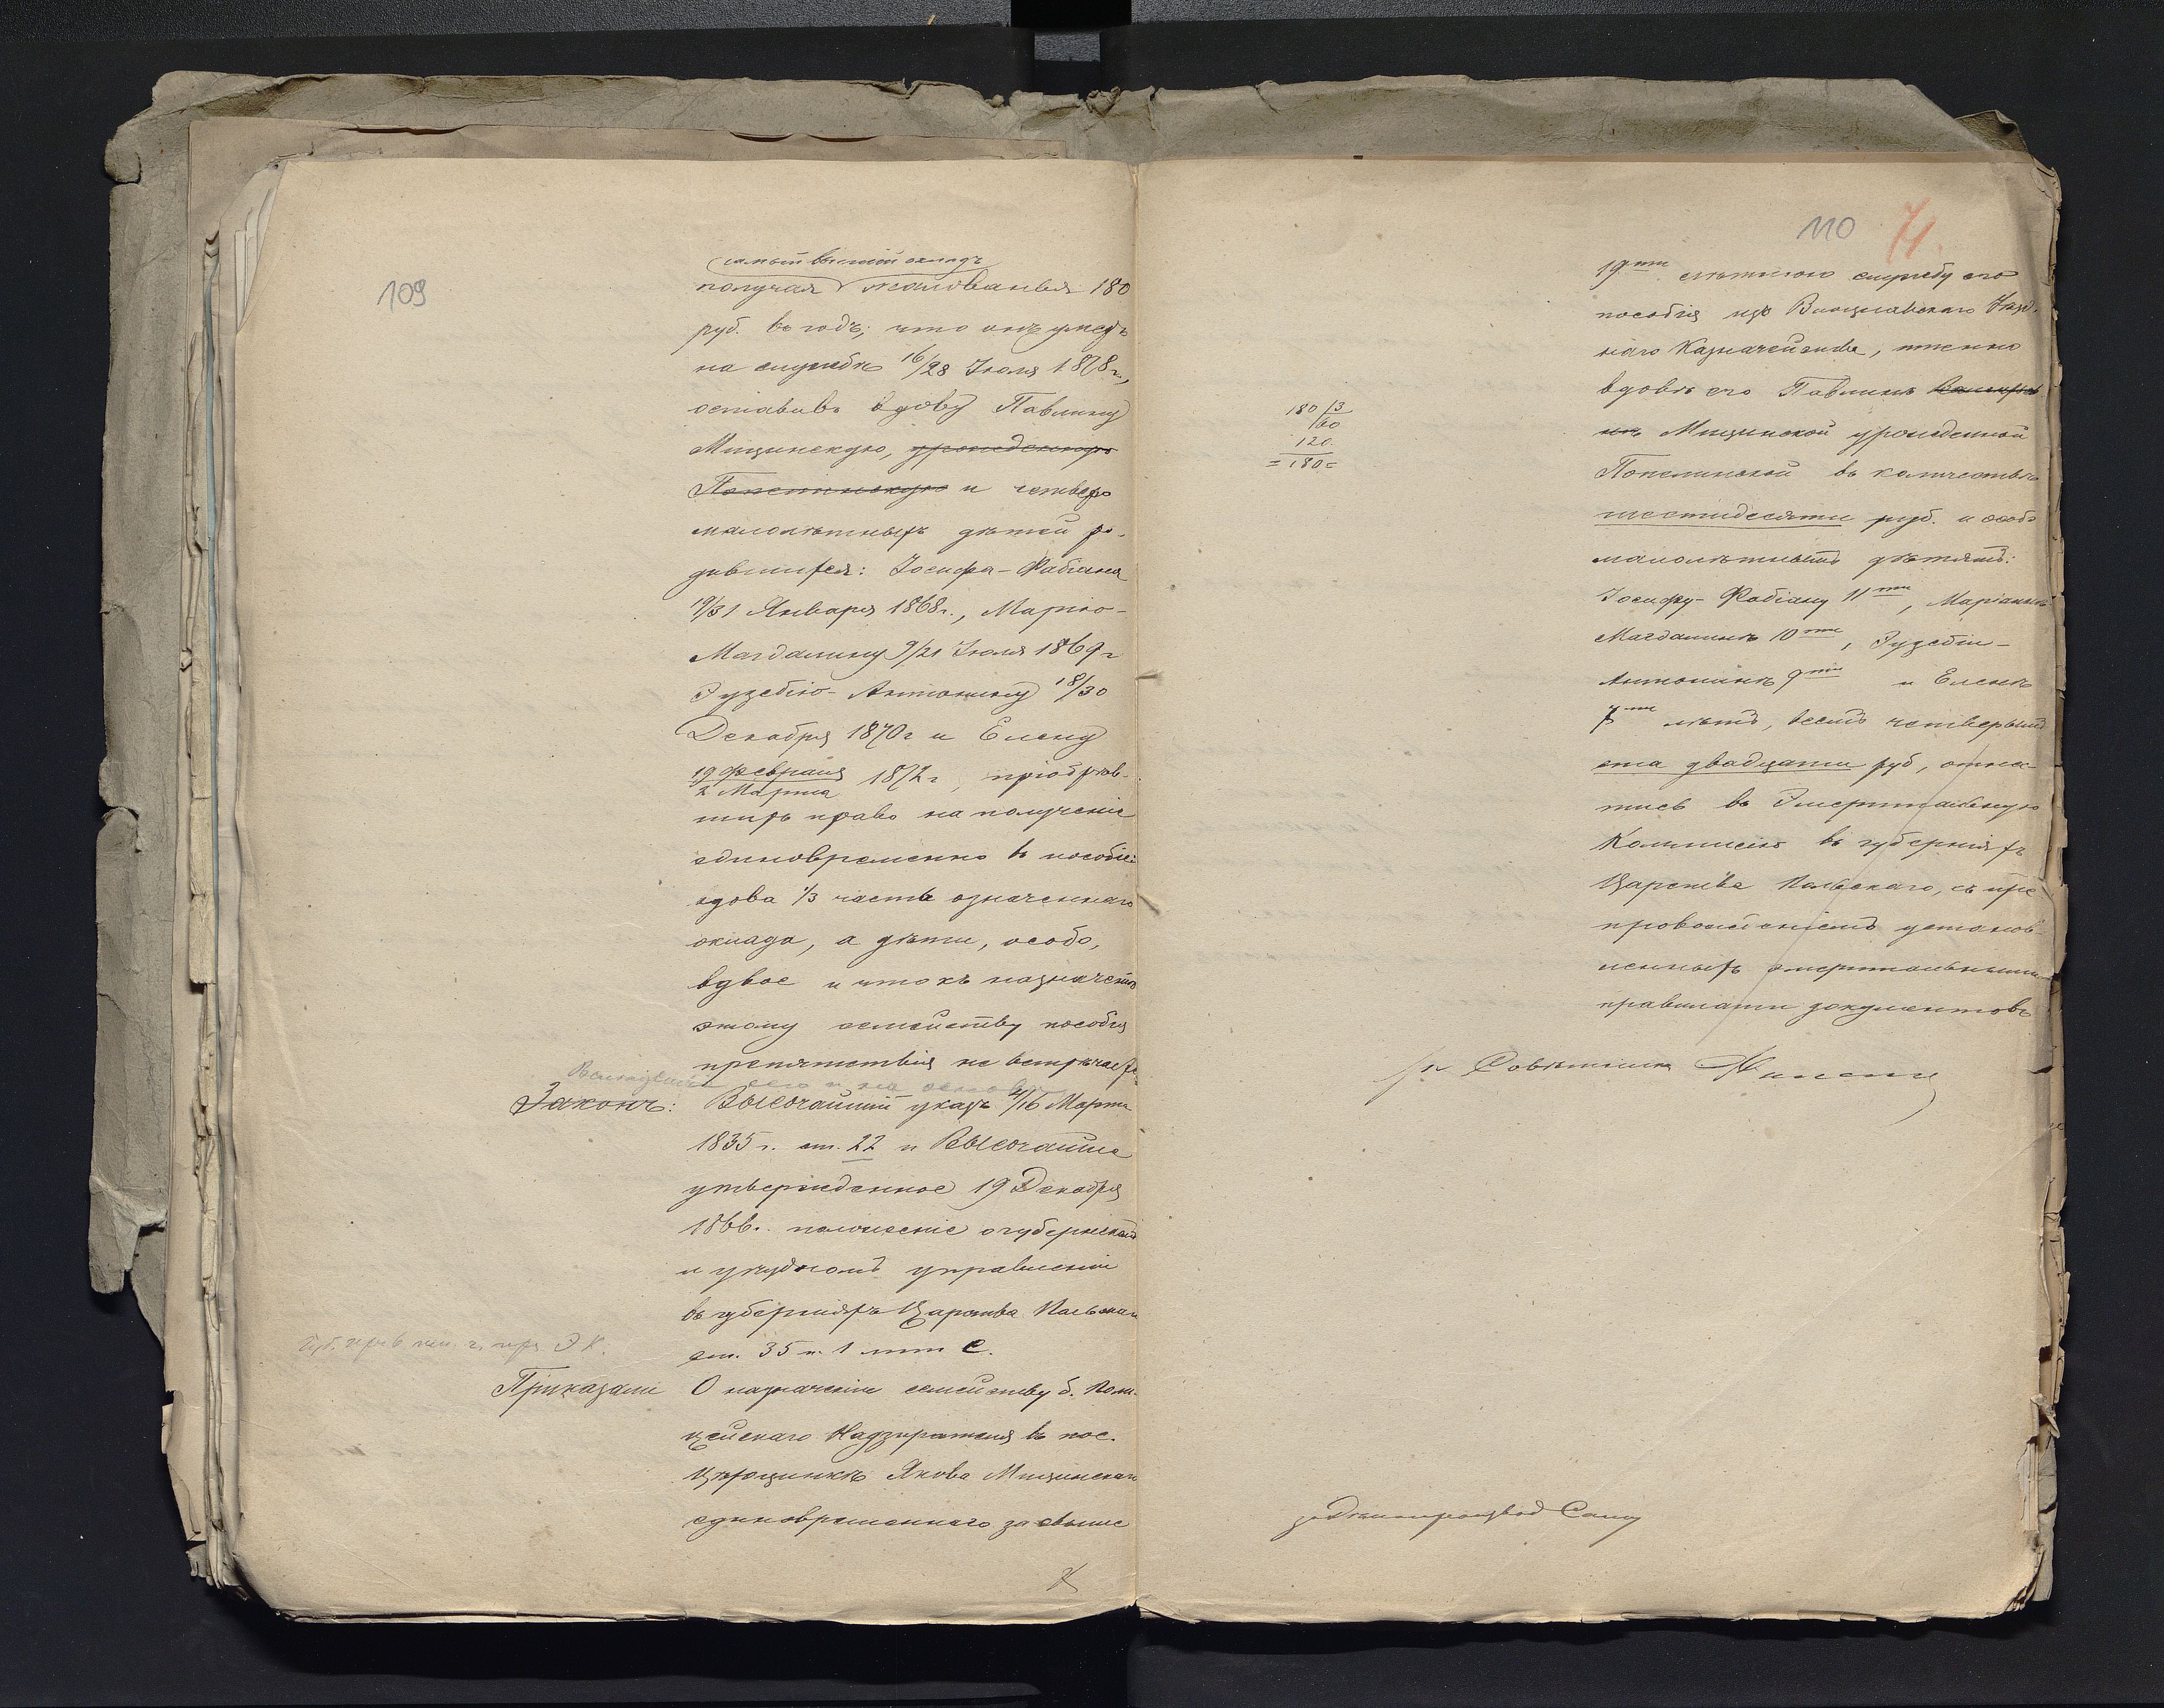 109
самый высшій окладъ
получая жалованья 180
руб. въ годъ; что онъ умеръ
на службѣ 16/28 Іюля 1878 г.,
оставивъ вдову Павлину
Мищинскую, урожденную
и четверо
малолѣтныхъ дѣтей ро-
дившихся: Іосифа-Фабіана
19/31 Января 1868 г., Марію-
Магдалину 9/21 Іюля 1869 г
Эузебію-Антонину 18/30
Декабря 1870 г и Елену
19 Февраля
2 Марта 1872 г, пріобрѣв-
шихъ право на полученіе
единовременно въ пособіе:
вдова 1/3 часть означеннаго
оклада, а дѣти, особо,
вдвое и что къ назначенію
этому семейству пособія
препятствія не встрѣчается
сего и на основ
Законъ: Высочайшій указъ 4/16 Марта
1835 г. ст. 22 и Высочайше
утвержденное 19 Декабря
1866 г. положеніе о губернскомъ
и уѣздномъ управленіи
въ губерніяхъ Царства Польскаго
ст. 35 п. 1 лит С.
Приказали О назначеніи семейству б. Поли-
цейскаго Надзирателя въ пос.
Якова Мищинскаго
единовременнаго за свыше
110 74.
19ти лѣтнюю службу его
пособія изъ Влоцлавскаго Уѣзд-
наго Казначейства, именно
вдовѣ его Павлинѣ
Мищинской урожденной
Попелинской въ количествѣ
шестидесяти руб. и особо
малолѣтнымъ дѣтямъ:
Іосифу-Фабіану 11ти, Маріаннѣ
Магдалинѣ 10ти, Эузебіи-
Антонинѣ 9ти и Еленѣ
7ми лѣтъ, всемъ четверымъ
сто двадцати руб, отнес-
тись въ Эмеритальную
Коммисію въ губерніяхъ
Царства Польскаго, съ пре
провожденіемъ установ-
ленныхъ эмеритальными
правилами документовъ
180/3
60
120.
=180=
Совѣтникъ
за Дѣлопроизвод